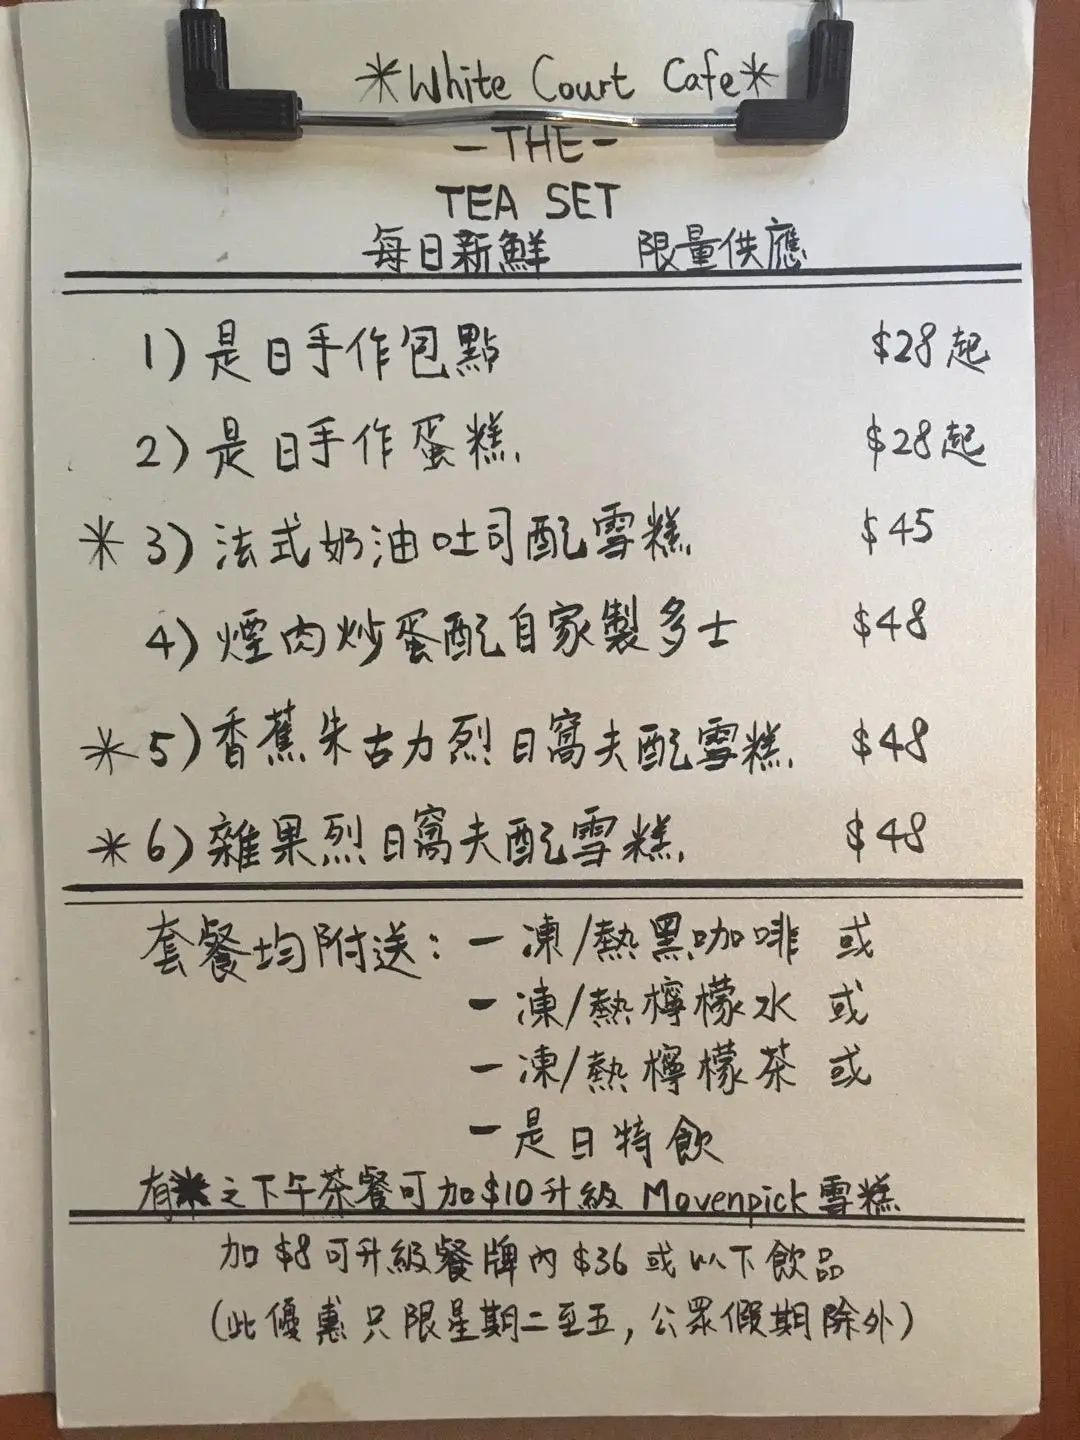 *White Court Cafe*
-THE-
TEA SET
每日新鮮 限量供應
1) 是日手作包點 $28起
2) 是日手作蛋糕 $28起
* 3) 法式奶油吐司配雪糕 $45
4) 煙肉炒蛋配自家製多士 $48
* 5) 香蕉朱古力烈日窩夫配雪糕 $48
* 6) 雜果烈日窩夫配雪糕 $48
套餐均附送: - 凍/熱黑咖啡 或
- 凍/熱檸檬水 或
- 凍/熱檸檬茶 或
- 是日特飲
有*之下午茶餐可加$10升級 Movenpick雪糕
加$8可升級餐牌內$36或以下飲品
(此優惠只限星期二至五,公眾假期除外)